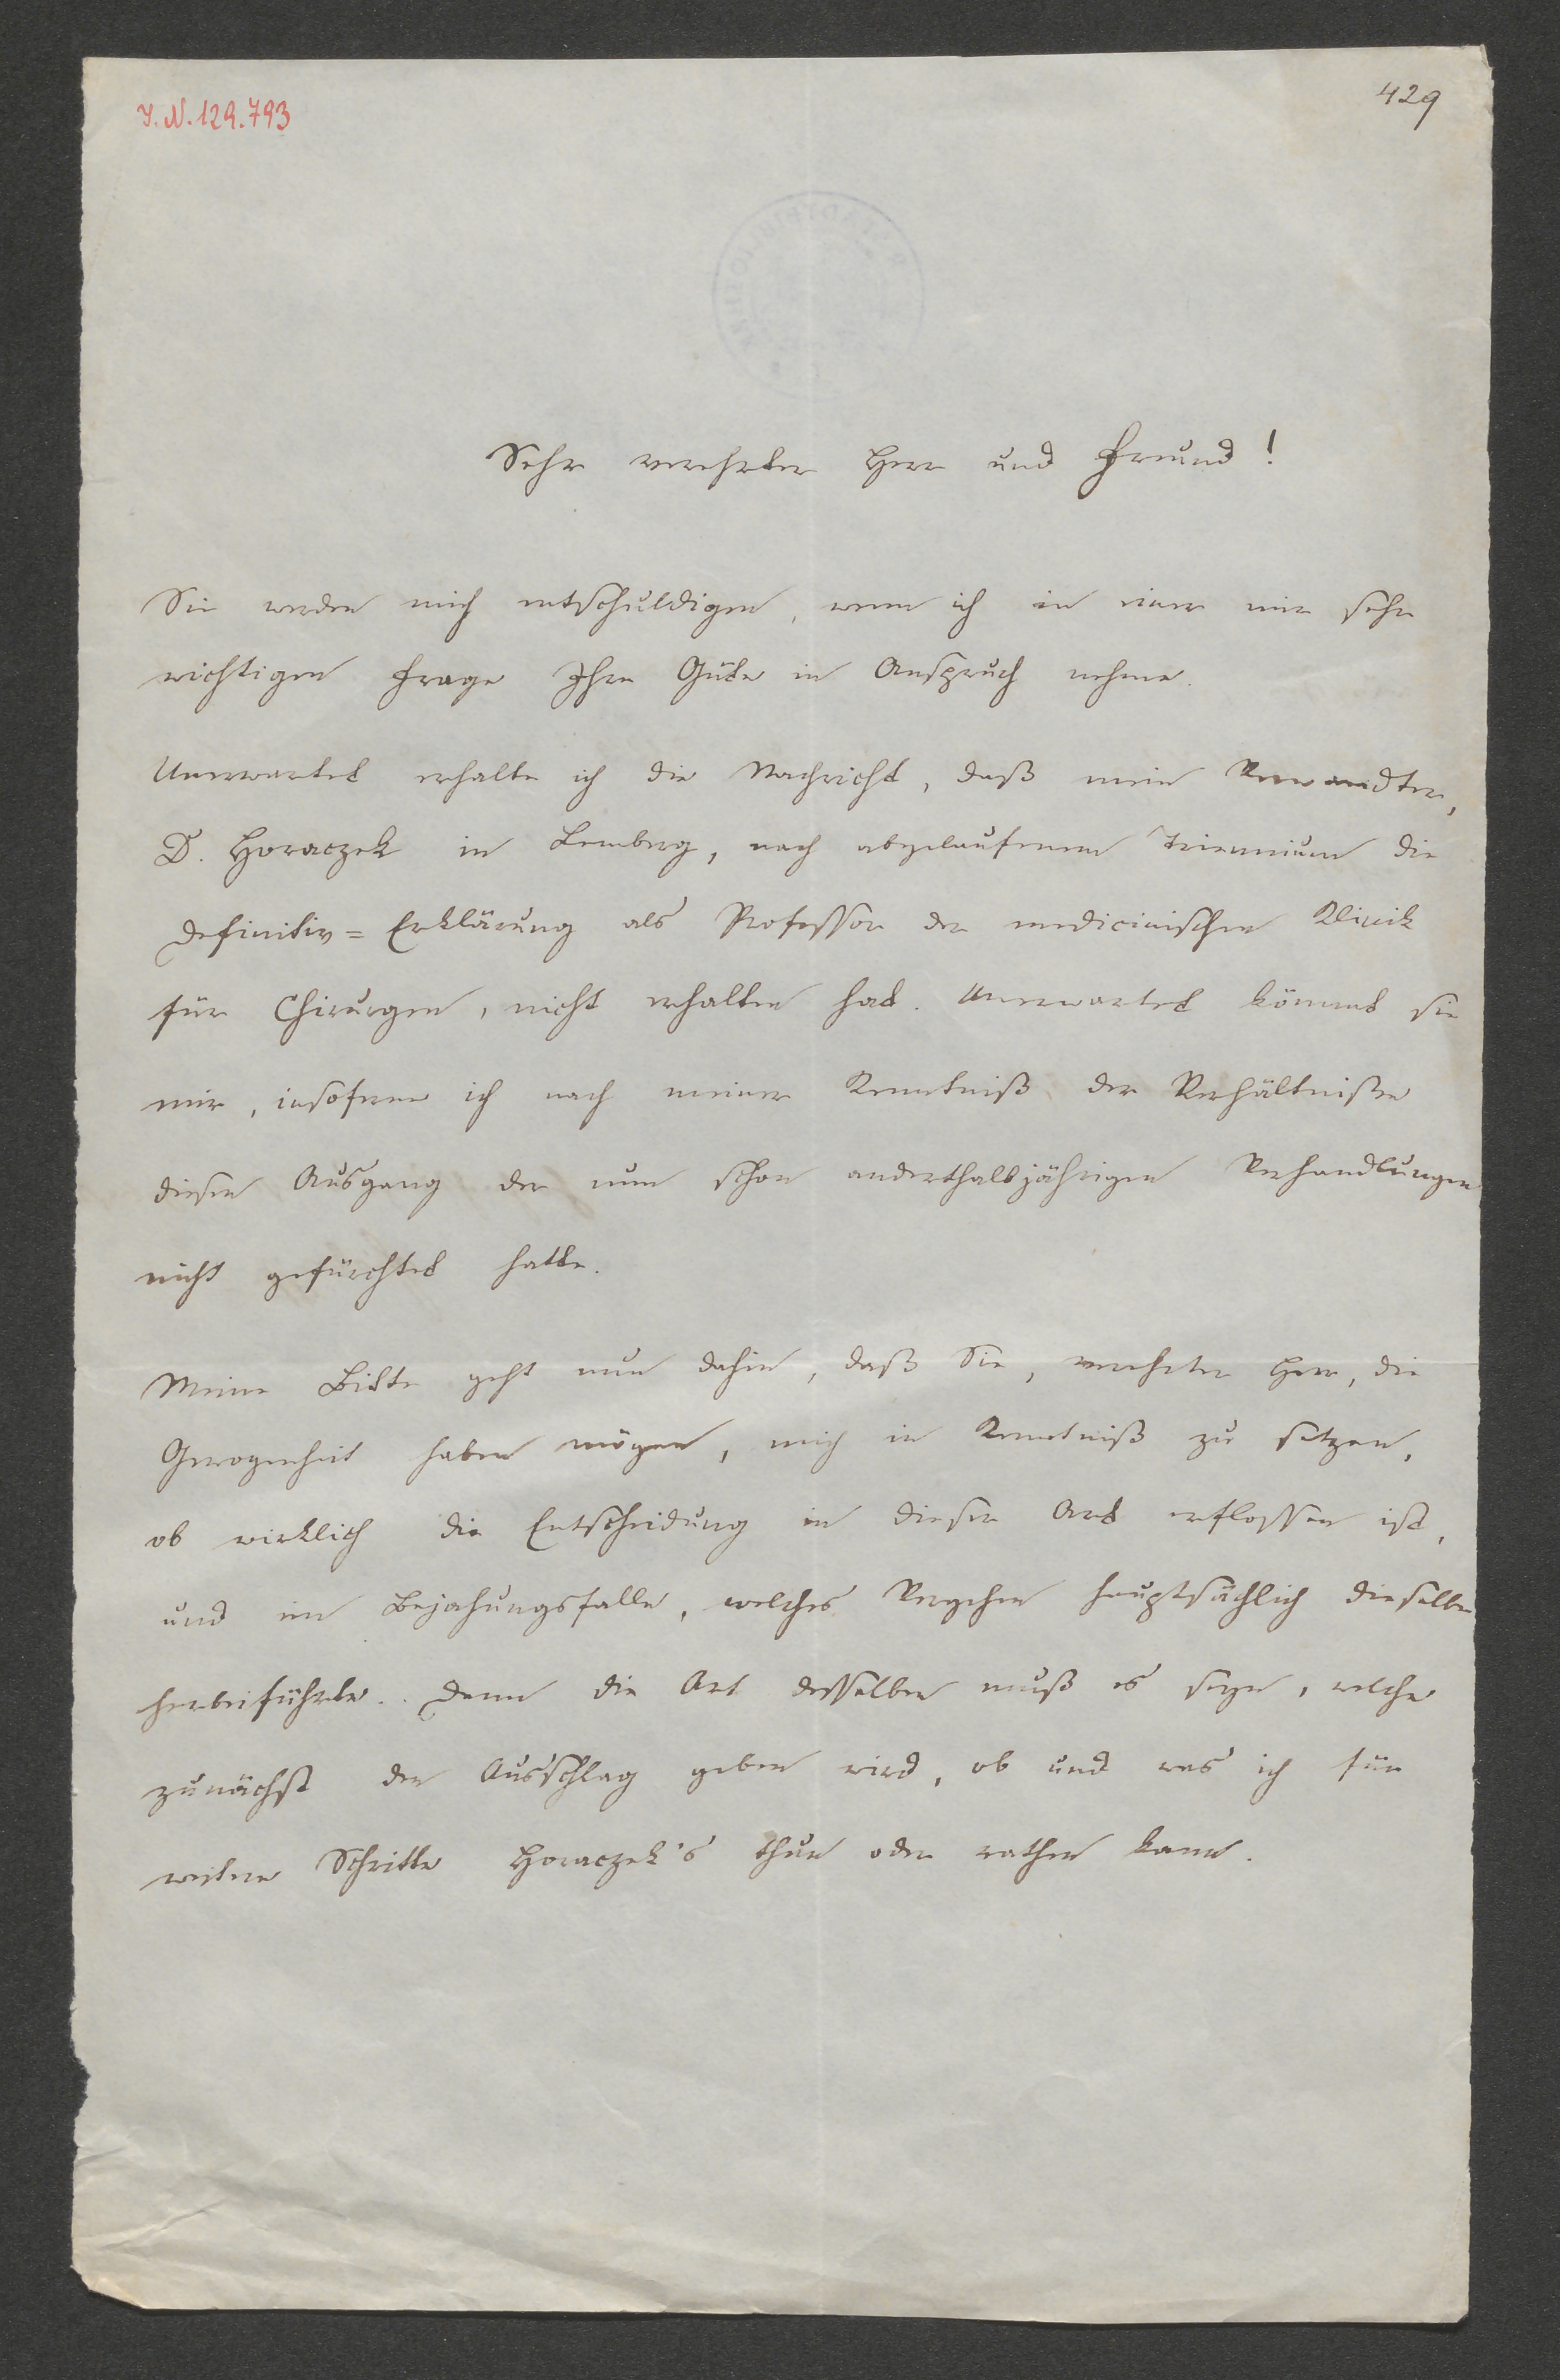 J. N. 129.793
429
Sehr verehrter Herr und Freund!
Sie werden mich entschuldigen, wenn ich in einer mir sehr
wichtigen Frage Ihre Güte in Anspruch nehme.
Unerwartet erhalte ich die Nachricht, daß mein Verwandter,
D. Horaczek in Lemberg, nach abgelaufenem Triennium die
Definitiv=Erklärung als Professor der medicinischen Klinik
für Chirurgen, nicht erhalten hat. Unerwartet kömmt sie
mir, insoferne ich nach meiner Kenntniß der Verhältnisse
diesen Ausgang der nun schon anderthalbjährigen Verhandlungen
nicht gefürchtet hatte.
Meine Bitte geht nun dahin, daß Sie, verehrter Herr, die
Gewogenheit haben mögen, mich in Kenntniß zu setzen,
ob wirklich die Entscheidung in dieser Art erflossen ist,
und im Bejahungsfalle, welches Vergehen hauptsächlich dieselbe
herbeiführte. Denn die Art desselben muß es seyn, welche
zunächst den Ausschlag geben wird, ob und was ich für
weitere Schritte Horaczek's thun oder rathen kann.